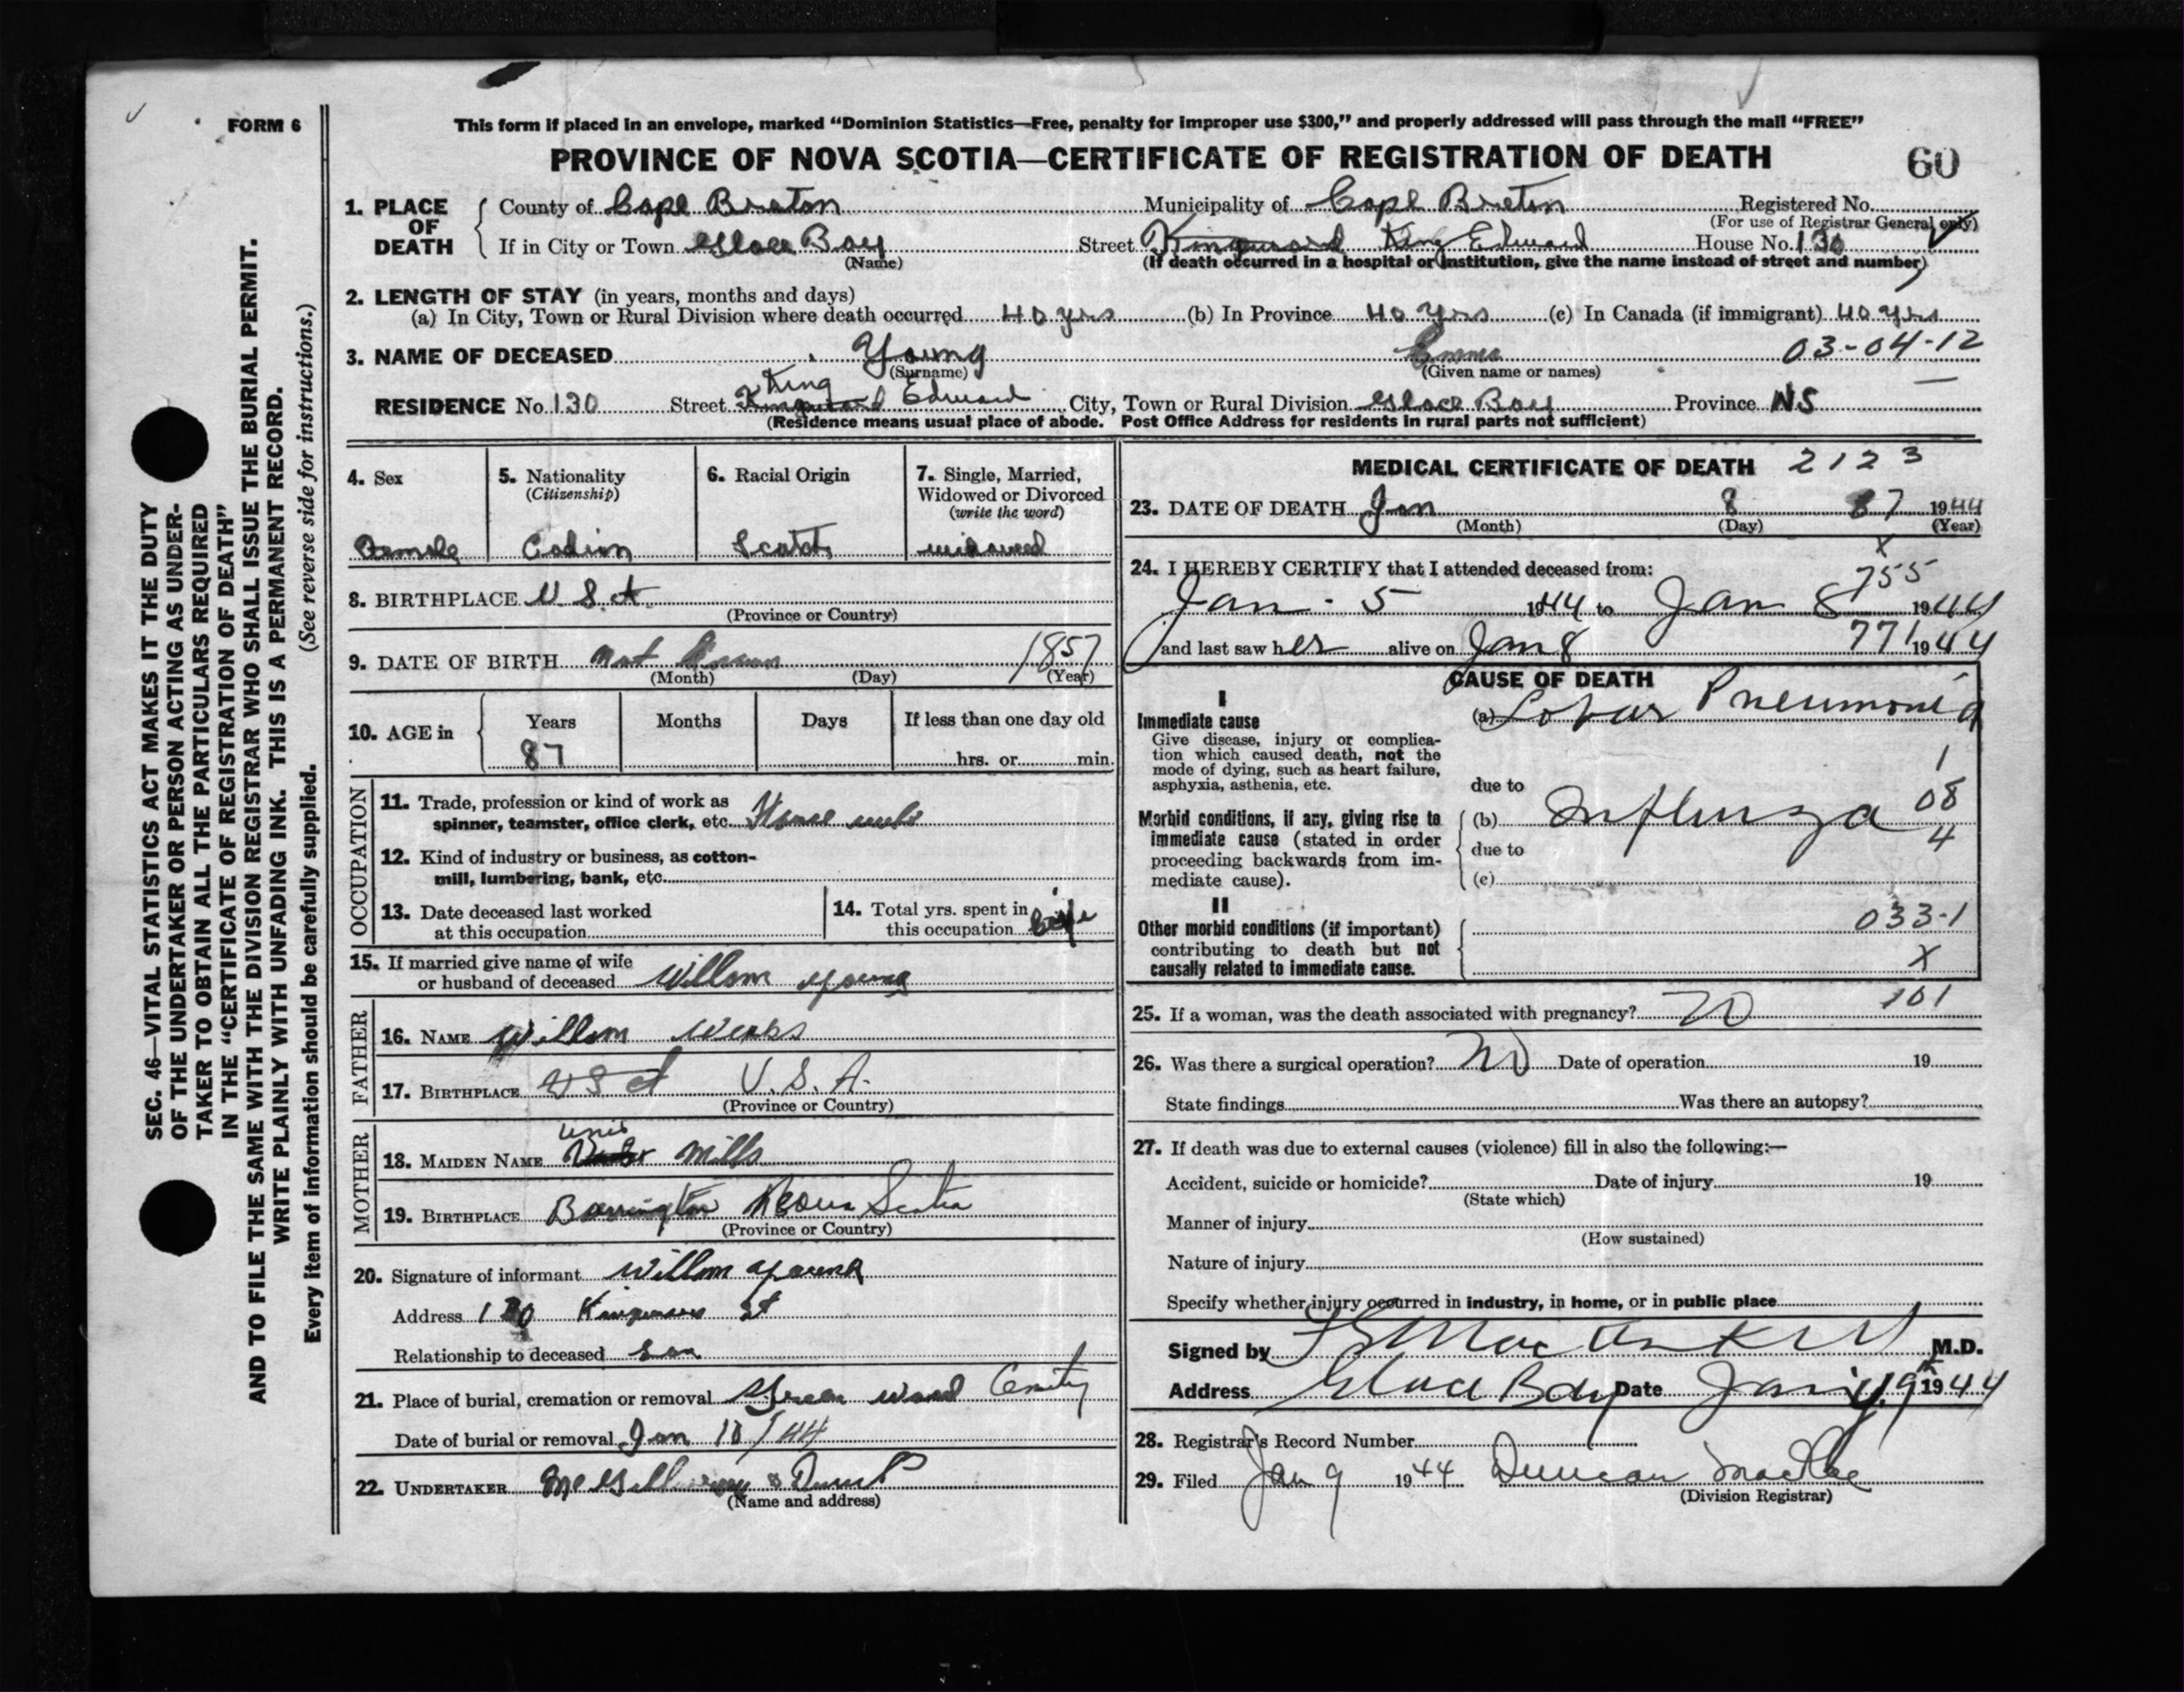 FORM 6
This form if placed in an envelope, marked "Dominion Statistics—Free, penalty for improper use $300," and properly addressed will pass through the mail "FREE"
PROVINCE OF NOVA SCOTIA—CERTIFICATE OF REGISTRATION OF DEATH 60
SEC. 46—VITAL STATISTICS ACT MAKES IT THE DUTY
OF THE UNDERTAKER OR PERSON ACTING AS UNDER-
TAKER TO OBTAIN ALL THE PARTICULARS REQUIRED
IN THE "CERTIFICATE OF REGISTRATION OF DEATH"
AND TO FILE THE SAME WITH THE DIVISION REGISTRAR WHO SHALL ISSUE THE BURIAL PERMIT.
WRITE PLAINLY WITH UNFADING INK. THIS IS A PERMANENT RECORD.
Every item of information should be carefully supplied. (See reverse side for instructions.)
1. PLACE OF DEATH
County of Cape Breton Municipality of Cape Breton Registered No.
(For use of Registrar General only)
If in City or Town Glace Bay Street King Edward House No. 130
(Name) (If death occurred in a hospital or institution, give the name instead of street and number)
2. LENGTH OF STAY (in years, months and days)
(a) In City, Town or Rural Division where death occurred 40 yrs (b) In Province 40 yrs (c) In Canada (if immigrant) 40 yrs
3. NAME OF DECEASED Young Emma 03-04-12
(Surname) (Given name or names)
RESIDENCE No. 130 Street King Edward City, Town or Rural Division Glace Bay Province NS
(Residence means usual place of abode. Post Office Address for residents in rural parts not sufficient)
4. Sex
Female
5. Nationality
(Citizenship)
6. Racial Origin
Scotch
7. Single, Married,
Widowed or Divorced
(write the word)
widowed
8. BIRTHPLACE U.S.A.
(Province or Country)
9. DATE OF BIRTH not known 1857
(Month) (Day) (Year)
10. AGE in
Years Months Days If less than one day old
87 hrs. or min.
OCCUPATION
11. Trade, profession or kind of work as
spinner, teamster, office clerk, etc. House
12. Kind of industry or business, as cotton-
mill, lumbering, bank, etc.
13. Date deceased last worked
at this occupation
14. Total yrs. spent in
this occupation
15. If married give name of wife
or husband of deceased Willom Young
FATHER
16. NAME Willom
17. BIRTHPLACE USA U.S.A.
(Province or Country)
MOTHER
18. MAIDEN NAME Mills
19. BIRTHPLACE Barrington Nova Scotia
(Province or Country)
20. Signature of informant Willom Young
Address 130 St
Relationship to deceased Son
21. Place of burial, cremation or removal Green Wood
Date of burial or removal Jan 10/44
22. UNDERTAKER
(Name and address)
MEDICAL CERTIFICATE OF DEATH 2123
23. DATE OF DEATH Jan 8 87 1944
(Month) (Day) (Year)
x
24. I HEREBY CERTIFY that I attended deceased from: 755
Jan - 5 1944 to Jan 8 1944
and last saw her alive on Jan 8 771 1944
CAUSE OF DEATH
I
Immediate cause
Give disease, injury or complica-
tion which caused death, not the
mode of dying, such as heart failure,
asphyxia, asthenia, etc.
(a) Lobar Pneumonia
1
due to
Morbid conditions, if any, giving rise to
immediate cause (stated in order
proceeding backwards from im-
mediate cause).
(b) Influenza 08
due to 4
(c)
II
Other morbid conditions (if important)
contributing to death but not
causally related to immediate cause.
033-1
X
101
25. If a woman, was the death associated with pregnancy? no
26. Was there a surgical operation? no Date of operation 19
State findings Was there an autopsy?
27. If death was due to external causes (violence) fill in also the following:—
Accident, suicide or homicide? Date of injury 19
(State which)
Manner of injury
(How sustained)
Nature of injury
Specify whether injury occurred in industry, in home, or in public place
Signed by M.D.
Address Glace Bay Date 1944
28. Registrar's Record Number
29. Filed Jan 9 1944 Duncan MacRae
(Division Registrar)